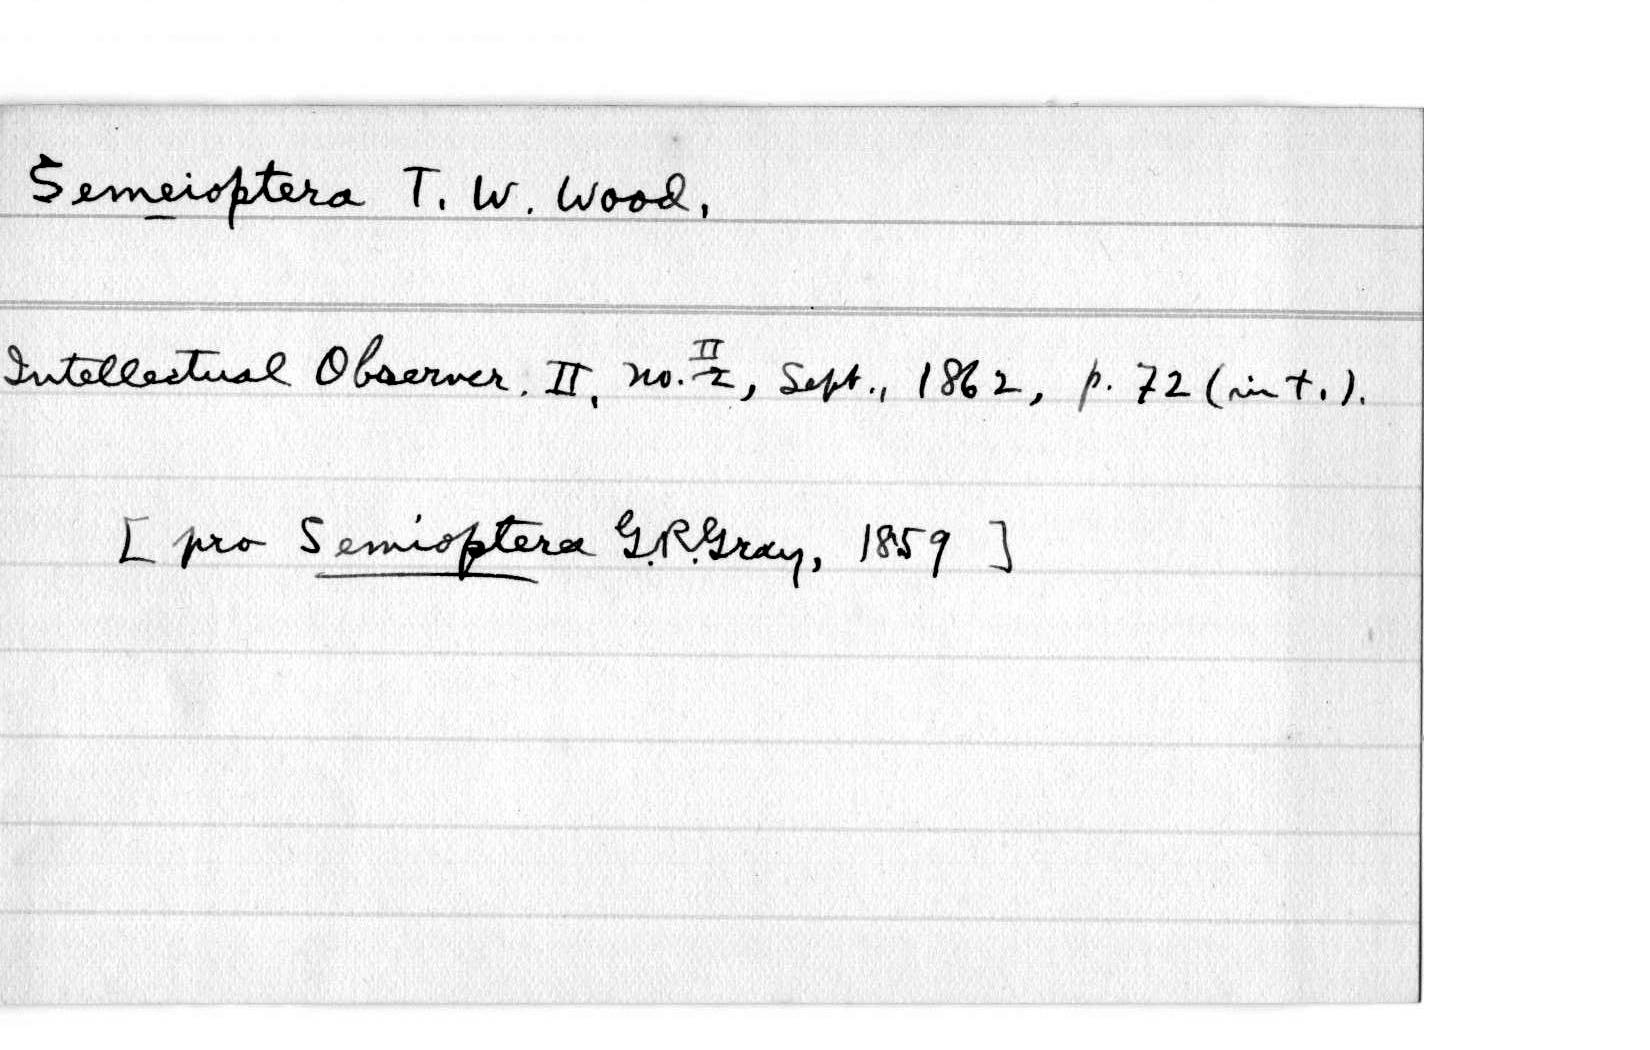 Semeioptera T. W. Wood.
Intellectual Observer. II, no. II 2, Sept., 1862, p. 72 (in t.).
[ pro Semioptera G.R.Gray, 1859 ]